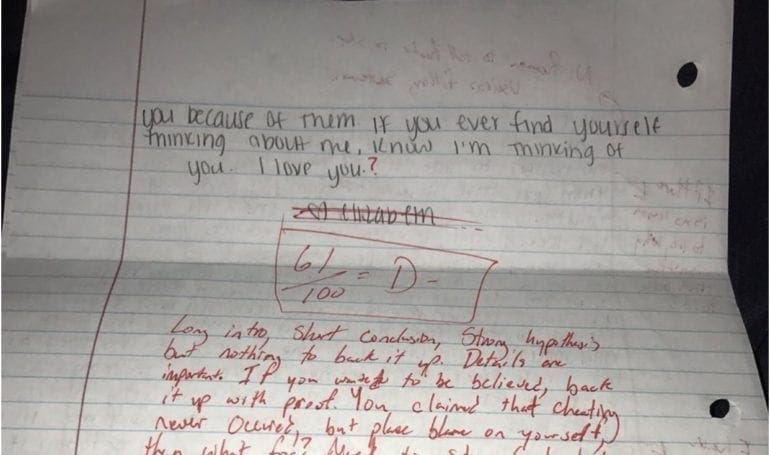 you because of them. If you ever find yourself
thinking about me, know I'm thinking of
you. I love you.?
Elizabeth
61/100 = D-
Long intro, Short conclusion, Strong hypothesis
but nothing to back it up. Details are
important. If you want to be believed, back
it up with proof. You claimed that cheating
never occured, but place blame on yourself,
then what for?